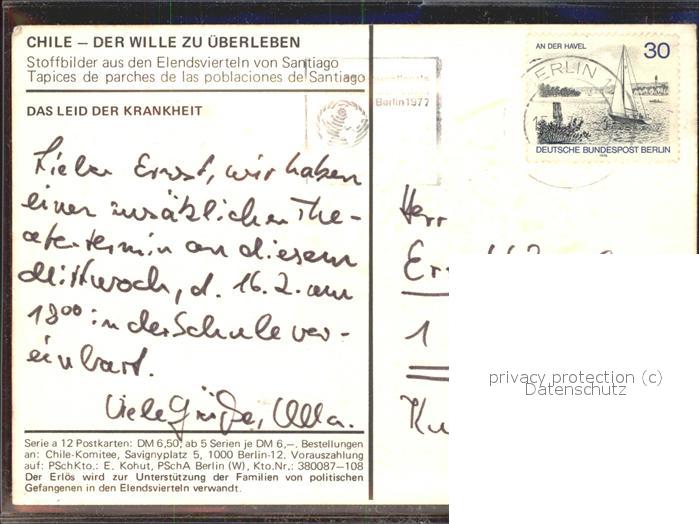 CHILE – DER WILLE ZU ÜBERLEBEN
Stoffbilder aus den Elendsvierteln von Santiago
Tapices de parches de las poblaciones de Santiago
DAS LEID DER KRANKHEIT
Lieber Ernst, wir haben
einen zusätzlichen The-
atertermin an diesem
Mittwoch, d. 16.2. um
18⁰⁰ in der Schule ver-
einbart.
Viele Grüße, Ulla.
Serie a 12 Postkarten: DM 6,50, ab 5 Serien je DM 6,–. Bestellungen
an: Chile-Komitee, Savignyplatz 5, 1000 Berlin-12. Vorauszahlung
auf: PSchKto.: E. Kohut, PSchA Berlin (W), Kto.Nr.: 380087–108
Der Erlös wird zur Unterstützung der Familien von politischen
Gefangenen in den Elendsvierteln verwandt.
Berlin 1977
AN DER HAVEL
30
BERLIN
DEUTSCHE BUNDESPOST BERLIN
Herr
1
privacy protection (c)
Datenschutz